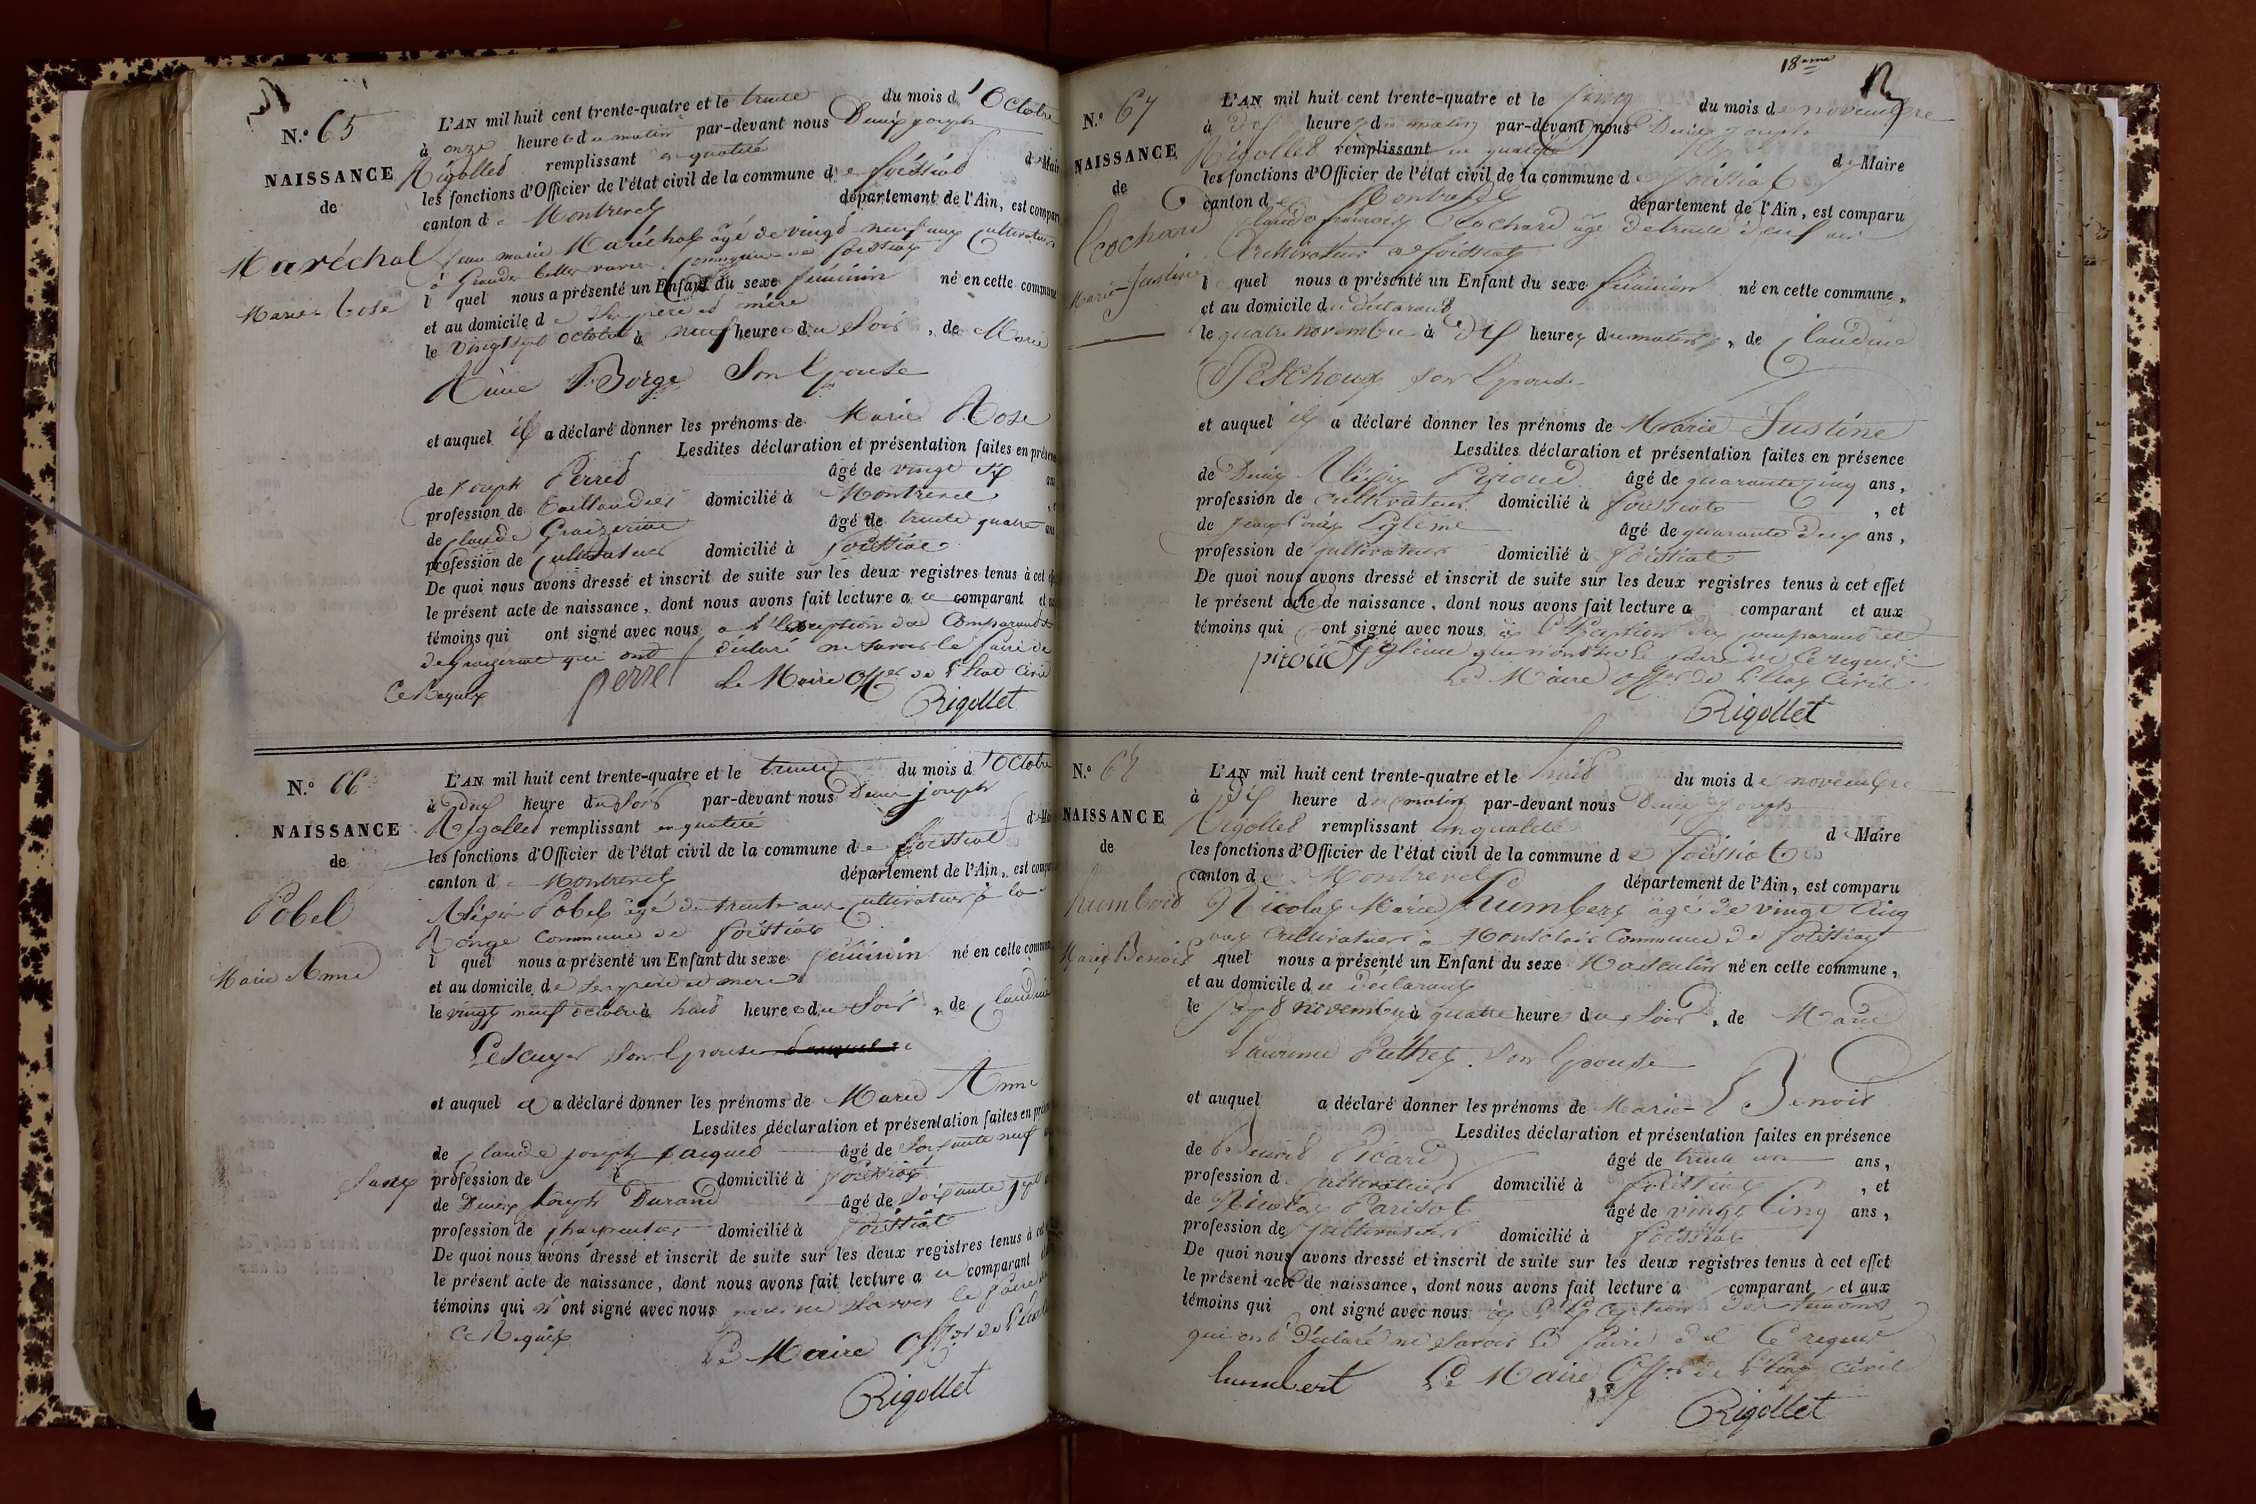 N.° 65
NAISSANCE
de
Maréchal
Marie Rose
L'AN mil huit cent trente-quatre et le trente du mois d'Octobre
à onze heures du matin par-devant nous Denis joseph
Rigollet remplissant en qualité de Maire
les fonctions d'Officier de l'état civil de la commune de foissiat
canton de Montrevel département de l'Ain, est comparu
jean marie Maréchal âgé de vingt neuf ans Cultivateur
à commune de foissiat
l quel nous a présenté un Enfant du sexe féminin né en cette commune
et au domicile de ses père et mère
le vingt sept octobre à neuf heures du Soir, de Marie
Borge Son Epouse
et auquel il a déclaré donner les prénoms de Marie Rose
Lesdites déclaration et présentation faites en présence
de joseph Perret âgé de vingt six ans
profession de Taillandier domicilié à Montrevel
de Claude âgé de trente quatre ans
profession de Cultivateur domicilié à foissiat
De quoi nous avons dressé et inscrit de suite sur les deux registres tenus à cet effet
le présent acte de naissance, dont nous avons fait lecture a u comparant et aux
témoins qui ont signé avec nous a l'exception du Comparant et
de qui ont déclaré ne savoir le faire de
Ce Requis perret Le Maire Offer de l'Etat Civil
Rigollet
N.° 66
NAISSANCE
de
Pobel
Marie Anne
L'AN mil huit cent trente-quatre et le trente du mois d'Octobre
à heure du soir par-devant nous Denis joseph
Rigollet remplissant en qualité de Maire
les fonctions d'Officier de l'état civil de la commune de foissiat
canton de Montrevel département de l'Ain, est comparu
Alexis Pobel âgé de trente ans Cultivateur à la
Ronge Commune de foissiat
l quel nous a présenté un Enfant du sexe féminin né en cette commune
et au domicile de ses père et mère
le vingt neuf octobre à huit heures du Soir, de Claudine
Lescuyer son Epouse
et auquel a déclaré donner les prénoms de Marie Anne
Lesdites déclaration et présentation faites en présence
de Claude joseph jacquet âgé de soixante neuf
profession de domicilié à foissiat
de Denis joseph Durand âgé de Soixante sept
profession de charpentier domicilié à foissiat
De quoi nous avons dressé et inscrit de suite sur les deux registres tenus à cet
le présent acte de naissance, dont nous avons fait lecture a u comparant
témoins qui n'ont signé avec nous pour ne savoir le faire de
Ce Requis Le Maire Offer de l'Etat
Rigollet
18eme
N.° 67
NAISSANCE
de
Cochard
Marie-Justine
L'AN mil huit cent trente-quatre et le cinq du mois de novembre
à dix heures du matin par-devant nous Denis joseph
Rigollet remplissant en qualité de Maire
les fonctions d'Officier de l'état civil de la commune de foissiat
canton de Montrevel département de l'Ain, est comparu
Claude françois Cochard âgé de trente deux ans
Cultivateur à foissiat
l quel nous a présenté un Enfant du sexe féminin né en cette commune,
et au domicile du déclarant
le quatre novembre à dix heures du matin, de Claudine
son Epouse
et auquel il a déclaré donner les prénoms de Marie Justine
Lesdites déclaration et présentation faites en présence
de Denis Alexis Piroud âgé de quarante cinq ans,
profession de cultivateur domicilié à foissiat, et
de âgé de quarante deux ans,
profession de cultivateur domicilié à foissiat
De quoi nous avons dressé et inscrit de suite sur les deux registres tenus à cet effet
le présent acte de naissance, dont nous avons fait lecture a comparant et aux
témoins qui ont signé avec nous à l'Exception du comparant et
piroud faire de Ce requis
Le Maire offer de l'Etat Civil
Rigollet
N.°
NAISSANCE
de
humbert
Marie Benoit
L'AN mil huit cent trente-quatre et le huit du mois de novembre
à dix heure du matin par-devant nous Denis joseph
Rigollet remplissant En qualité de Maire
les fonctions d'Officier de l'état civil de la commune de foissiat
canton de Montrevel département de l'Ain, est comparu
Nicolas Marie humbert âgé de vingt Cinq
ans Cultivateur à Montclair Commune de foissiat
quel nous a présenté un Enfant du sexe Masculin né en cette commune,
et au domicile du déclarant
le sept novembre à quatre heures du Soir, de Marie
Laurence Puthet Son Epouse
et auquel a déclaré donner les prénoms de Marie-Benoit
Lesdites déclaration et présentation faites en présence
de Benoit Picard âgé de trente un ans,
profession de Cultivateur domicilié à foissiat, et
de Nicolas Parisot âgé de vingt Cinq ans,
profession de Cultivateur domicilié à foissiat
De quoi nous avons dressé et inscrit de suite sur les deux registres tenus à cet effet
le présent acte de naissance, dont nous avons fait lecture a comparant et aux
témoins qui ont signé avec nous à l'Exception des temoins
qui ont déclaré ne savoir le faire de Ce requis
humbert Le Maire Offer de l'Etat Civil
Rigollet